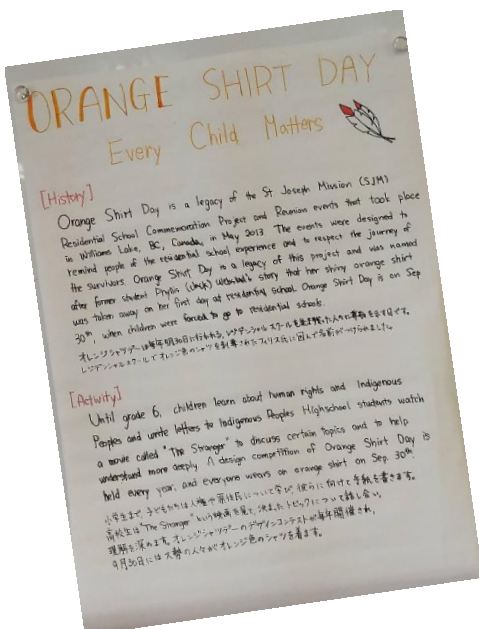 ORANGE SHIRT DAY
Every Child Matters
[History]
Orange Shirt Day is a legacy of the St Joseph Mission (SJM)
Residential School Commemoration Project and Reunion events that took place
in Williams Lake, BC, Canada, in May 2013. The events were designed to
remind people of the residential school experience and to respect the journey of
the survivors. Orange Shirt Day is a legacy of this project and was named
after former student Phyllis (Jack) Webstad's story that her shiny orange shirt
was taken away on her first day at residential school. Orange Shirt Day is on Sep
30th, when children were forced to go to residential schools.
オレンジシャツデーは毎年9月30日に行われる、レジデンシャルスクールを生き抜いた人々に尊敬を示す日です。
レジデンシャルスクールでオレンジ色のシャツを剥奪されたフィリス氏に因んで名前がつけられました。
[Activity]
Until grade 6, children learn about human rights and Indigenous
Peoples and write letters to Indigenous Peoples. Highschool students watch
a movie called "The Stranger" to discuss certain topics and to help
understand more deeply. A design competition of Orange Shirt Day is
held every year, and everyone wears an orange shirt on Sep. 30th.
小学生まで、子どもたちは人権や原住民について学び、彼らに向けて手紙を書きます。
高校生は"The Stranger"という映画を見て、決まったトピックについて話し合い、
理解を深めます。オレンジシャツデーのデザインコンテストが毎年開催され、
9月30日には大勢の人々がオレンジ色のシャツを着ます。